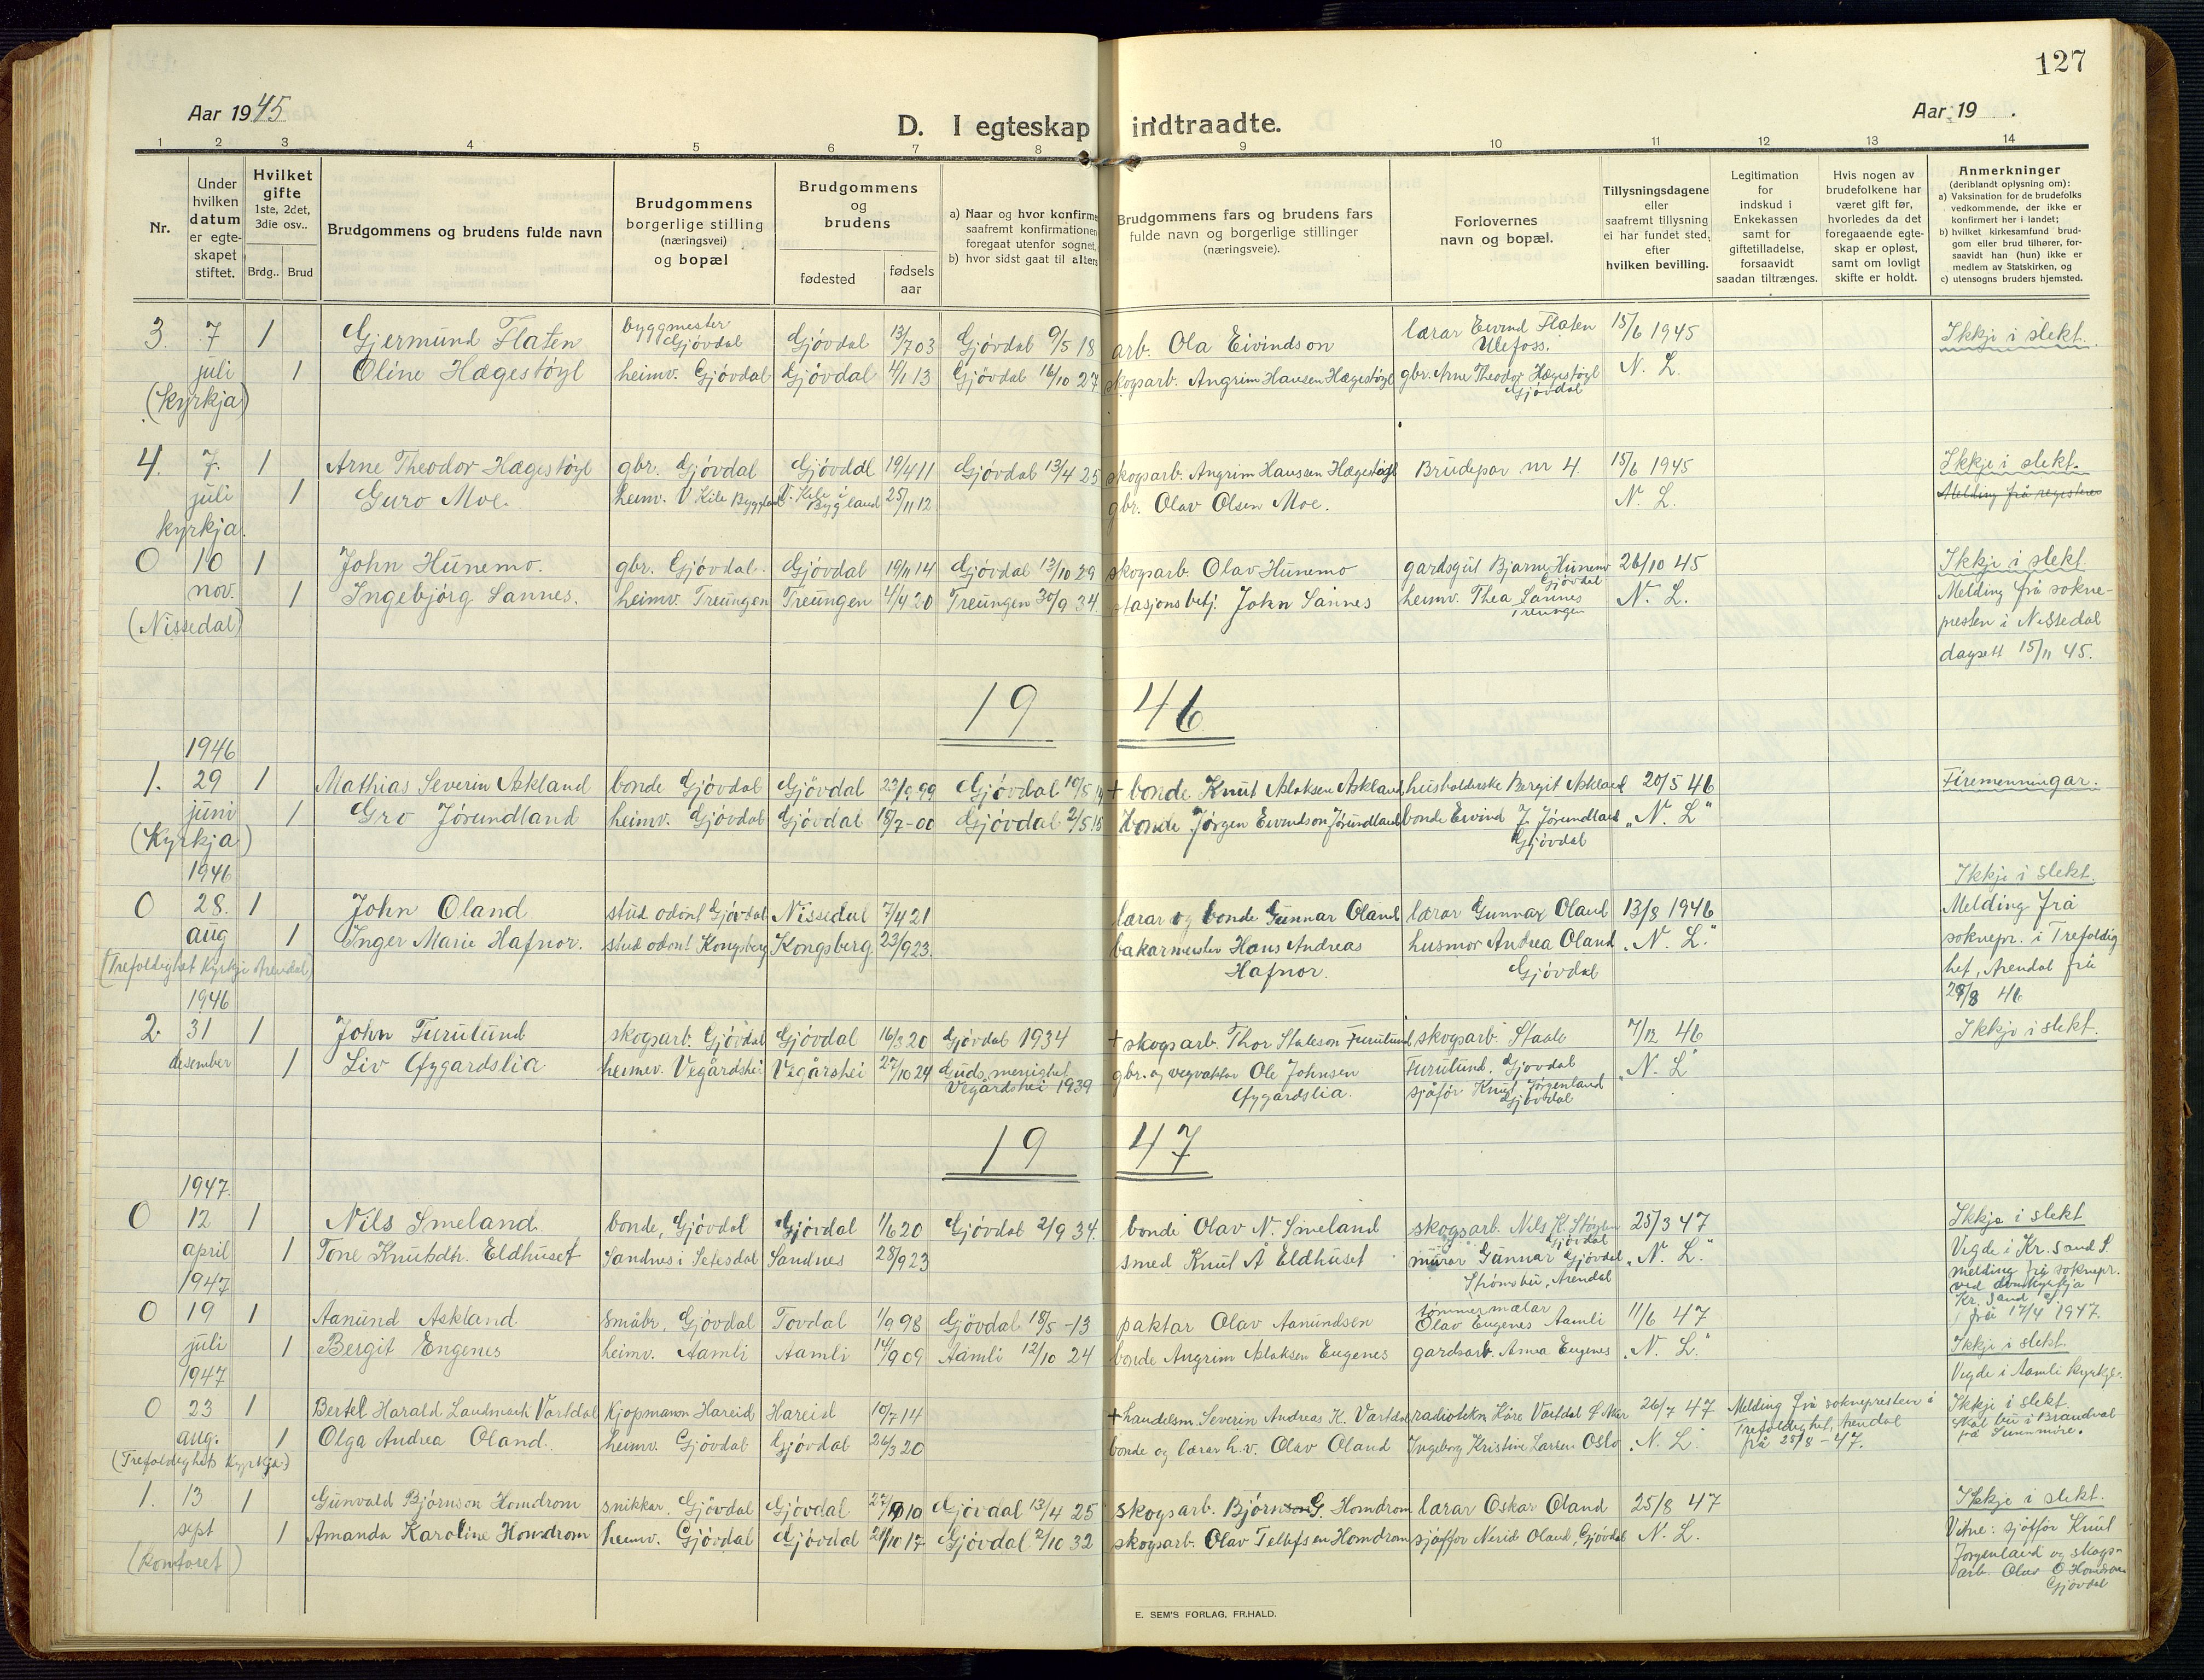 127
Aar 1945
D. I egteskap indtraadte.
Aar 19    .
1 2 3 4 5 6 7 8 9 10 11 12 13 14
Nr.
Under hvilken datum er egte-skapet stiftet.
Hvilket gifte 1ste, 2det, 3die osv..
Brdg.. Brud
Brudgommens og brudens fulde navn
Brudgommens borgerlige stilling (næringsvei) og bopæl
Brudgommens og brudens
fødested fødsels aar
a) Naar og hvor konfirme
saafremt konfirmationen
foregaat utenfor sognet,
b) hvor sidst gaat til alters
Brudgommens fars og brudens fars
fulde navn og borgerlige stillinger
(næringsveie).
Forlovernes
navn og bopæl.
Tillysningsdagene
eller
saafremt tillysning
ei har fundet sted,
efter
hvilken bevilling.
Legitimation
for
indskud i
Enkekassen
samt for
giftetilladelse,
forsaavidt
saadan tiltrænges.
Hvis nogen av
brudefolkene har
været gift før,
hvorledes da det
foregaaende egte-
skap er opløst,
samt om lovligt
skifte er holdt.
Anmerkninger
(deriblandt oplysning om):
a) Vaksination for de brudefolks
vedkommende, der ikke er
konfirmert her i landet;
b) hvilket kirkesamfund brud-
gom eller brud tilhører, for-
saavidt han (hun) ikke er
medlem av Statskirken, og
c) utensogns bruders hjemsted.
3. 7 1 Gjermund Flaten byggmester Gjövdal Gjövdal 13/7 03 Gjövdal 9/5 18 arb. Ola Eivindson lærar Eivind Flaten Ulefoss. 15/6 1945 Ikkje i slekt.
juli 1 Oline Hægestöyl heimv. Gjövdal Gjövdal 4/1 13 Gjövdal 16/10 27 skogsarb. Angrim Hansen Hægestöyl gbr. Arne Theodor Hægestöyl Gjövdal N. L.
(Kyrkja)
4. 7. 1 Arne Theodor Hægestöyl gbr. Gjövdal Gjövdal 19/4 11 Gjövdal 13/4 25 skogsarb. Angrim Hanssen Hægestöyl Brudepar nr 4. 15/6 1945 Ikkje i slekt.
juli 1 Guro Moe. heimv. V Kile Byggland V. Kile i Bygland 25/11 12 gbr. Olav Olsen Moe. N. L. Melding frå
kyrkja.
0 10 1 John Hunemo. gbr. Gjövdal. Gjövdal 19/11 14 Gjövdal 13/10 29 skogsarb. Olav Hunemo gardsgut Bjarne Hunemo Gjövdal 26/10 45 Ikkje i slekt.
nov. 1 Ingebjörg Sannes. heimv. Treungen Treungen 4/4 20 Treungen 30/9 34. stasjonsbetj. John Sannes heimv. Thea Sannes Treungen N. L. Melding frå sokne-
(Nissedal) presten i Nissedal
dagsett 15/11 45.
19 46
1946
1. 29 1 Mathias Severin Askland bonde Gjövdal Gjövdal 23/9 99 Gjövdal 10/5 + bonde Knut Aslaksen Askland husholderske Bergit Askland 20/5 46 Firemenningar.
juni 1 Gro Jörundland heimv. Gjövdal Gjövdal 18/7-00 Gjövdal 2/5 bonde Jörgen Eivindson Jörundland bonde Eivind J. Jörundland Gjövdal „N. L"
(Kyrkja)
1946 Ikkje i slekt.
0 28. 1 John Oland stud odont Gjövdal Nissedal 7/4 21 lærar og bonde Gunnar Oland lærar Gunnar Oland 13/8 1946 Melding frå
aug 1 Inger Marie Hafnor. stud odont Kongsberg Kongsberg. 23/9 23. bakarmester Hans Andreas Hafnor. husmor Andrea Oland Gjövdal „N. L." soknepr. i Trefoldig
(Trefoldighet Kyrkje Arendal) het, Arendal frå
1946 28/8 46
2. 31 1 John Furulund skogsarb. Gjövdal Gjövdal 16/3 20 Gjövdal 1934 + skogsarb. Thor Staleson Furulund skogsarb. Staale 7/12 46 Ikkje i slekt.
desember 1 Liv Öygardslia heimv. Vegårdshei Vegårshei 27/10 24 Guds menighet Vegårdshei 1939 gbr. og vegvaktar Ole Johnsen Öygardslia. Furulund, Gjövdal sjåför Knut Jörgenland Gjövdal „N. L"
19 47
1947.
0 12 1 Nils Smeland. bonde, Gjövdal Gjövdal 1/6 20 Gjövdal 2/9 34. bonde Olav N. Smeland skogsarb. Nils K. Gjövdal 25/3 47 Ikkje i slekt
april 1 Tone Knutsdtr. Eldhuset Sandnes i Setesdal Sandnes 28/9 23 smed Knut Å Eldhuset murar Gunnar Gjövdal Strömsbu, Arendal „N. L." Vigde i Kr. sand S.
melding frå soknepr.
ved domkyrkja
Kr. Sand S.
frå 17/4 1947.
1947
0 19 1 Aanund Askland. småbr. Gjövdal Tovdal 1/9 98 Gjövdal 18/5 -13 paktar Olav Aanundsen tömmermælar Olav Eugenes Aamli 11/6 47
juli 1 Bergit Engenes heimv. Aamli Aamli 14/9 09 Aamli 12/10 24 bonde Angrim Aslaksen Eugenes gardsarb. Anna Eugenes „N. L." Ikkje i slekt.
1947 Vigde i Aamli kyrkje.
0 23 1 Bertel Harald Landmark Vartdal kjøpmann Hareid Hareid 10/7 14 + handelsm. Severin Andreas K. Vartdal radiotekn Kåre Vartdal 26/7 47 Melding frå soknepresten i Trefoldighet, Arendal frå 25/8-47. Ikkje i slekt.
aug. 1 Olga Andrea Oland. heimv. Gjövdal Gjövdal 26/3 20 bonde og lærar h.v. Olav Oland Ingeborg Kristine Larsen Oslo „N. L." Skal bu i Brandval på Sunnmöre.
(Trefoldighets Kyrkja)
1. 13 1 Gunvald Björnson Homdrom snikkar. Gjövdal Gjövdal 10 Gjövdal 13/4 25 skogsarb. Björnson G. Homdrom lærar Oskar Oland 25/8 47 Ikkje i slekt.
sept 1 Amanda Karoline Homdrom heimv. Gjövdal Gjövdal 21/10 17 Gjövdal 2/10 32 skogsarb. Olav Tellefsen Homdrom sjåffør Nerid Oland, Gjövdal N. L. Vitne: sjåfför Knut
(kontoret) Jörgenland og skogs-
arb. Olav O Homdrom
Gjövdal
E. SEM'S FORLAG, FR.HALD.